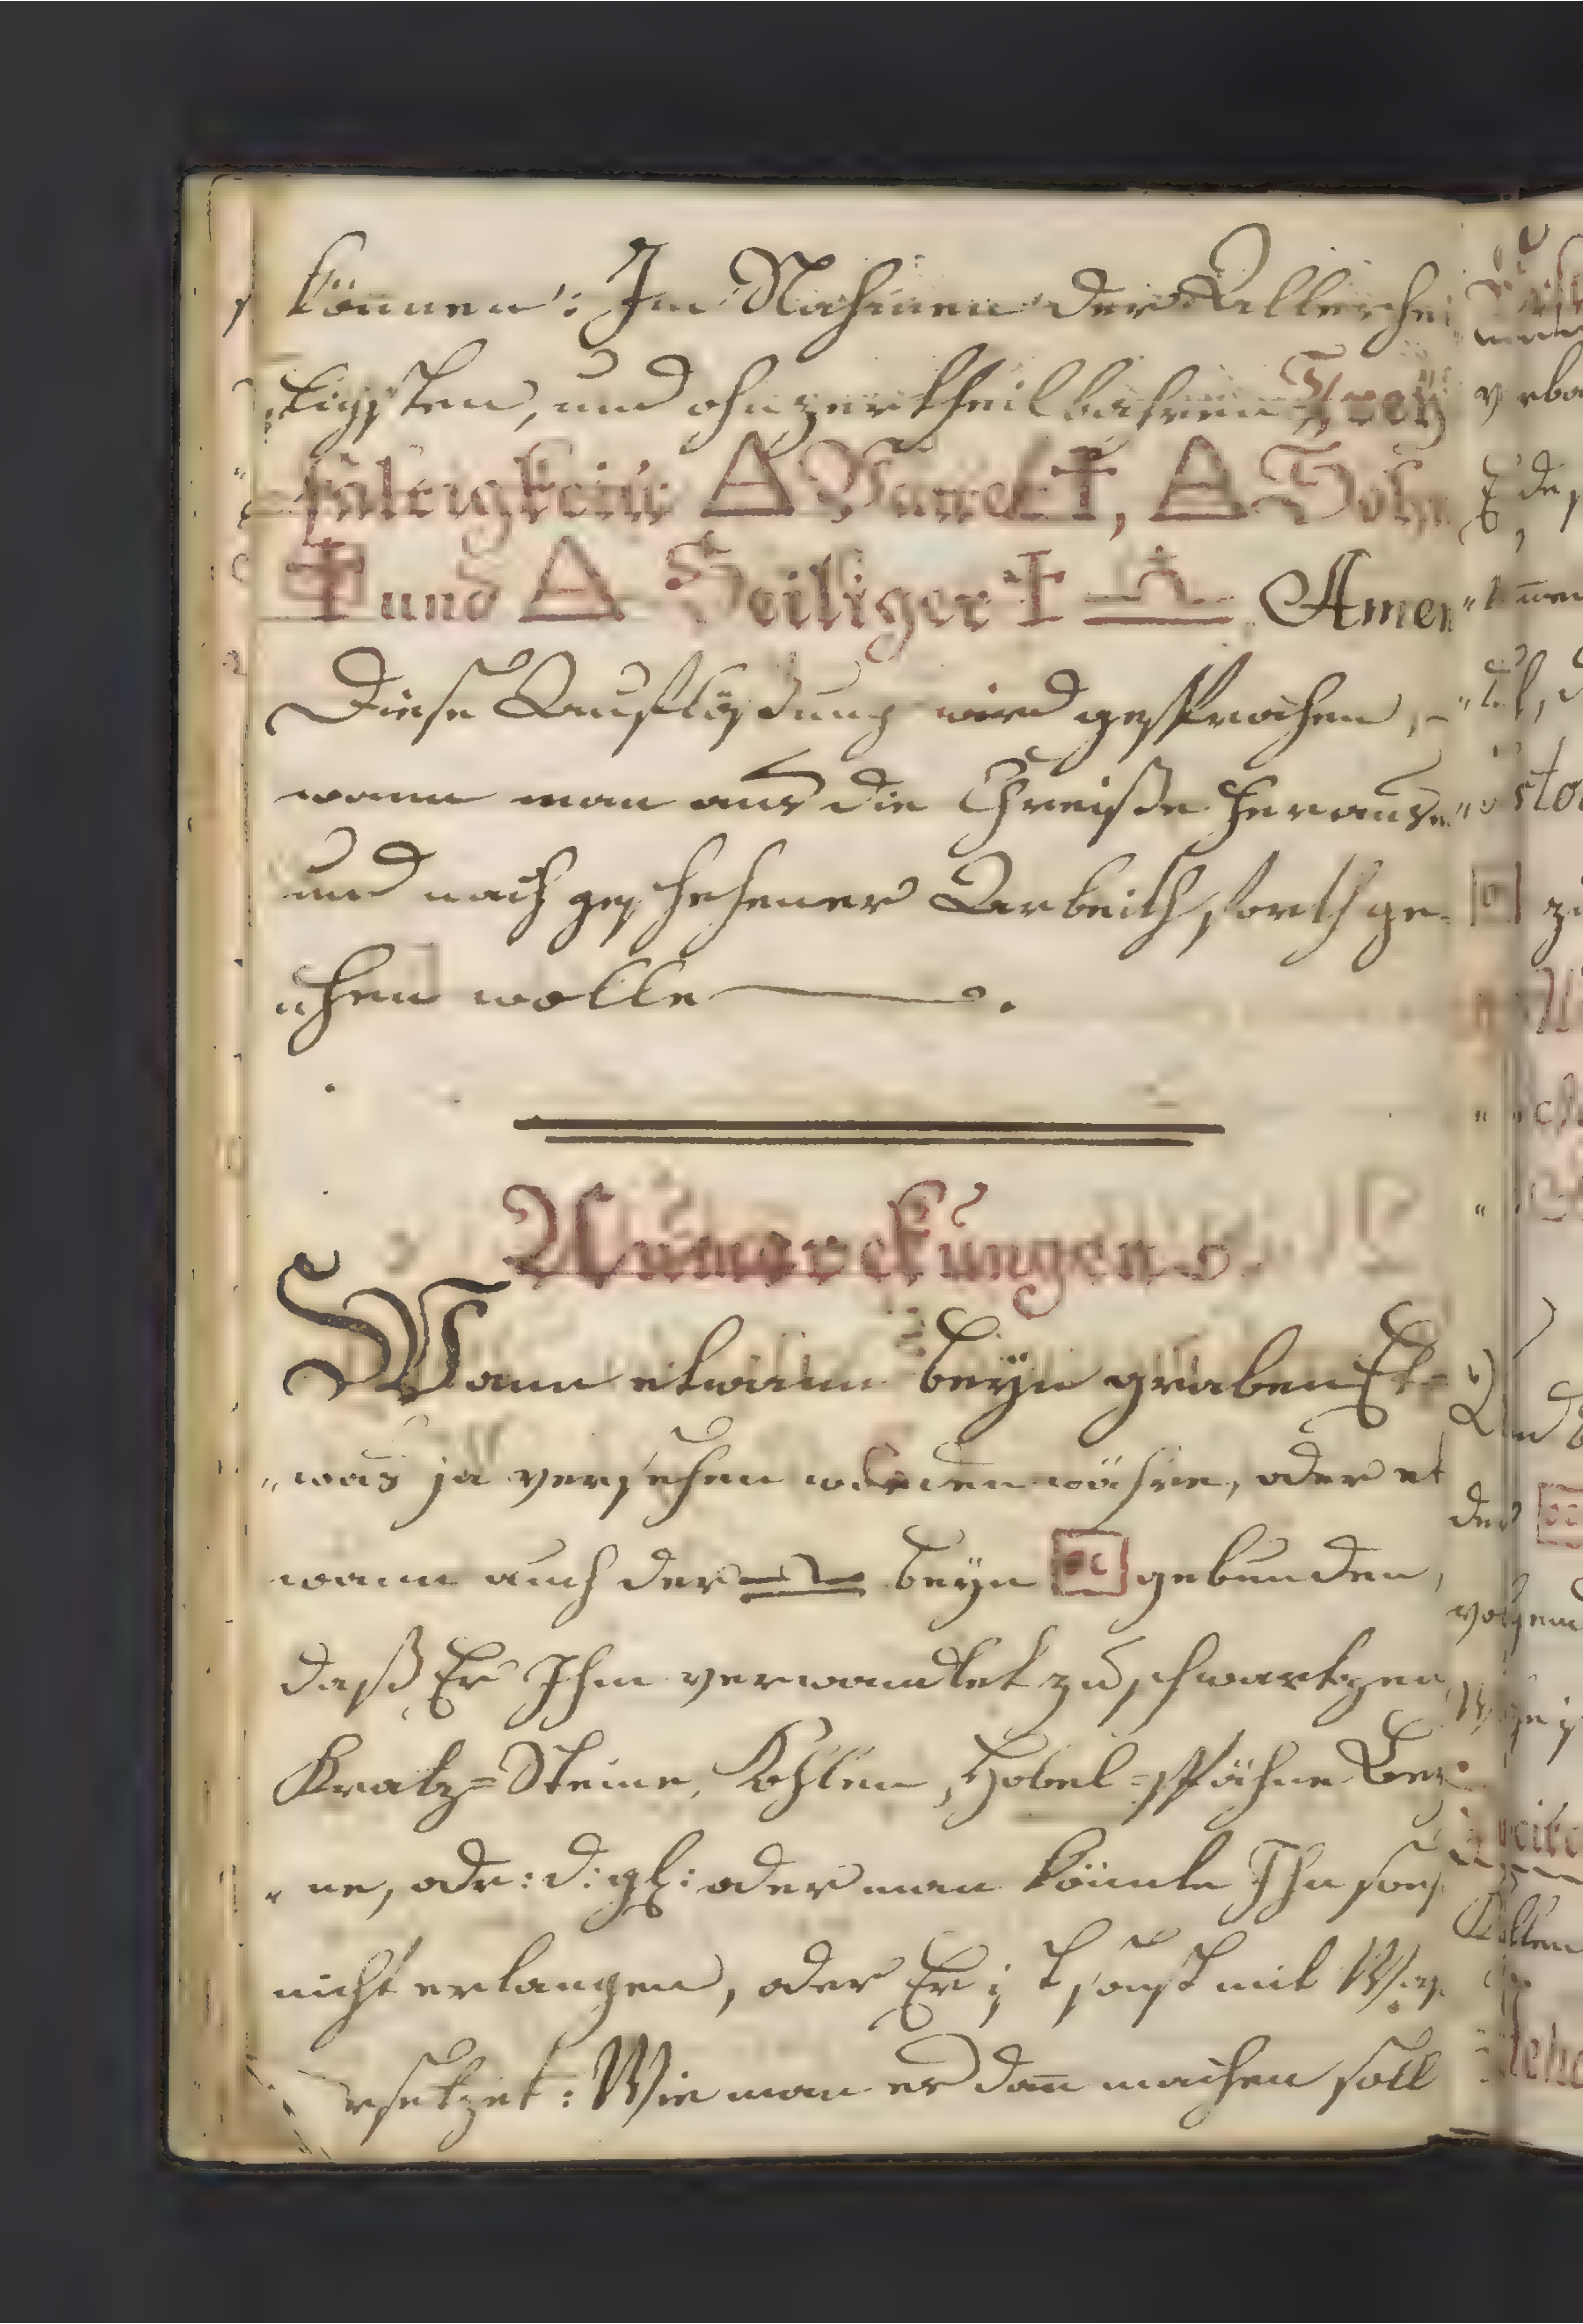 können: Im Nahmen der Allerhei
ligsten, und ohnzertheilbahren Drey
faltigkeit △ Vatter ✝, △ Sohn
✝ und △ Heiliger ✝ ♎. Amen
Diese Aufflösung wird gesprochen,
wann man aus die Chreisse heraus
und nach geschehener Arbeith forth ge-
"hen wolle.
Anmerckungen.
Wann etwann beÿn graben Et-
"was ja versehen worden währe, oder et
wann auch der ♎ beÿn gebunden,
daß Er Ihm verwandlet zu schwartzen
Kratz=Steine, Kohlen, Hobel=spähne Bey
"ne, odr: d: gl: oder man könnte Ihn sons
nicht erlangen, oder Er ist sonst mit
rsetzet: Wie man es dañ machen soll